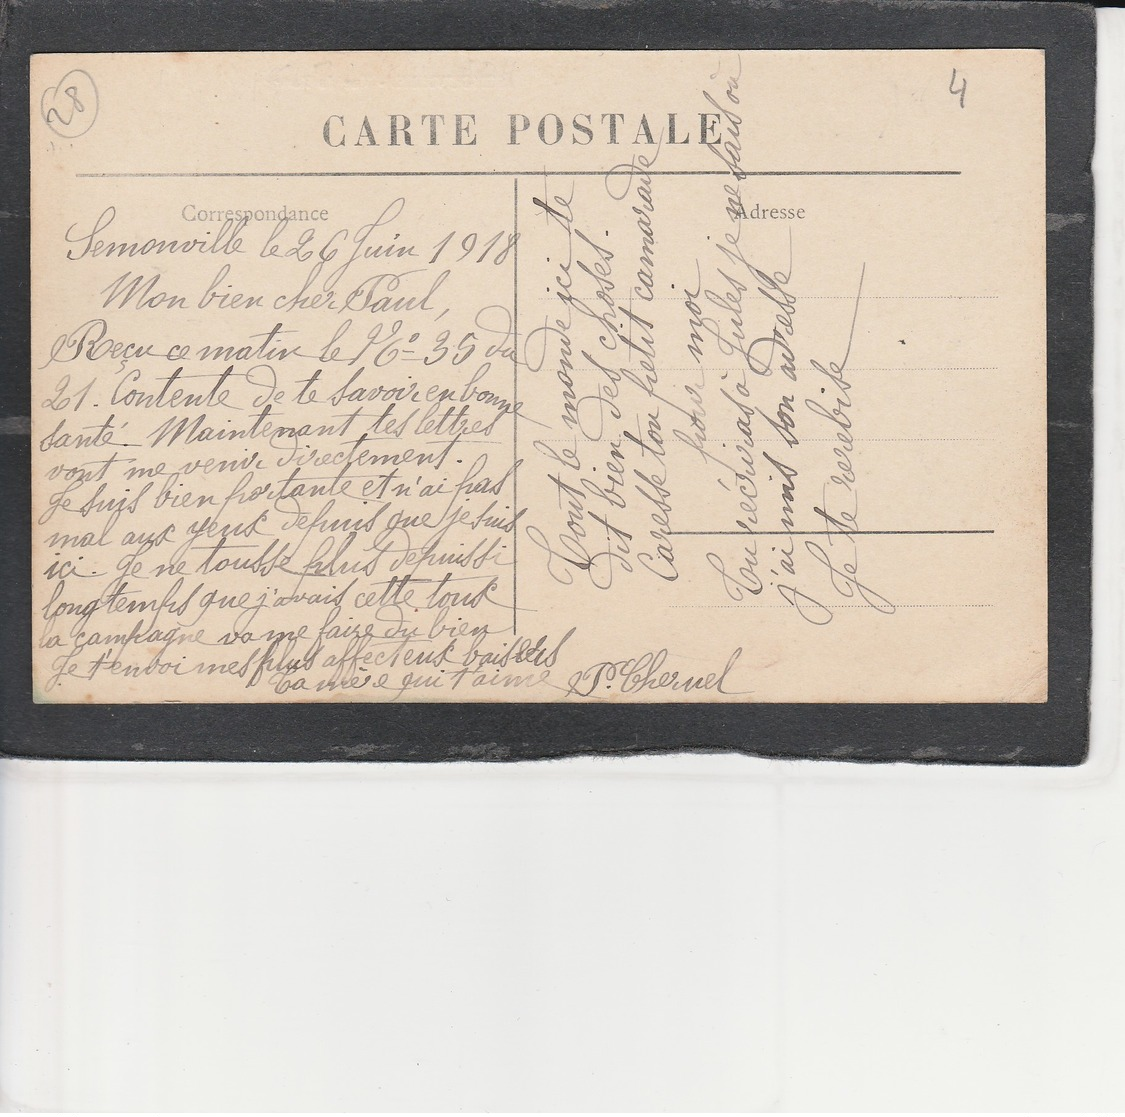 28
4
CARTE POSTALE
Correspondance
Adresse
Semonville le 26 Juin 1918
Mon bien cher Paul,
Reçu ce matin le No 35 du
21. Contente de te savoir en bonne
santé. Maintenant tes lettres
vont me venir directement.
Je suis bien portante et n'ai pas
mal aux yeux depuis que je suis
ici. Je ne tousse plus depuis si
longtemps que j'avais cette toux
la campagne va me faire du bien
Je t'envoi mes plus affecteux baisers
Ta mère qui t'aime P. Chernel
Tout le monde ici te
dit bien des choses.
Caresse ton petit camarade
pour moi
Tu écriras à Jules je ne sais où
j'ai mis son adresse
Je te rerebise